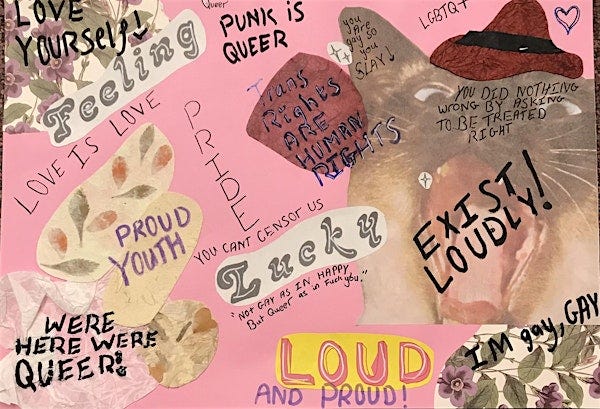 LOVE
YOURSELf!
Feeling
Queer
PUNK iS
QUEER
you
ARE
gay so
you
SLAY!
LGBTQ+
YOU DID NOTHING
WRONG BY ASKING
TO BE TREATED
RIGHT
Trans
Rights
ARE
HUMAN
RIGHTS
LOVE IS LOVE
PRIDE
PROUD
YOUTH
YOU CANT CENSOT US
Lucky
"NOT GAY AS IN HAPPY
But Queer as in Fuck you."
EXIST
LOUDLY!
WERE
HERE WERE
QUEER!
LOUD
AND PROUD!
I'M gay, GAY